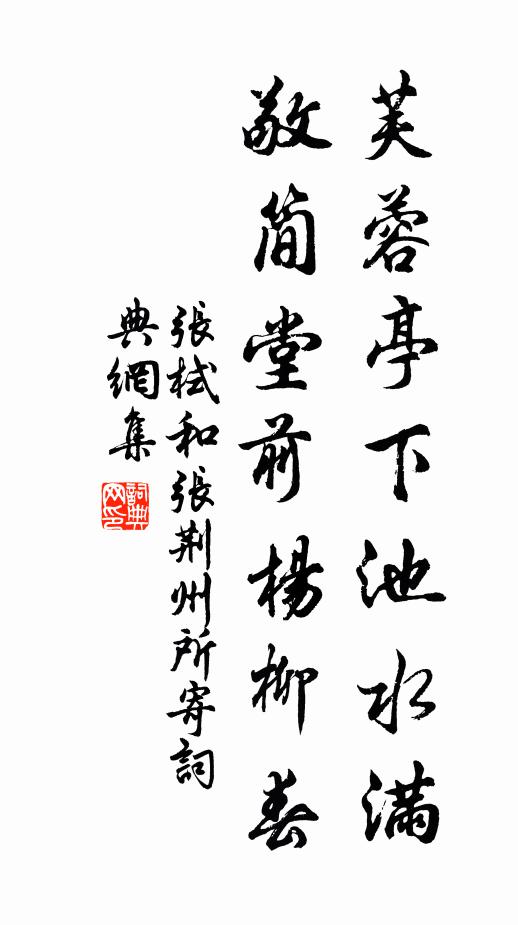 芙蓉亭下池水满
敬简堂前楊柳春
張栻和張荆州所寄詞
典網集
詞典
网印